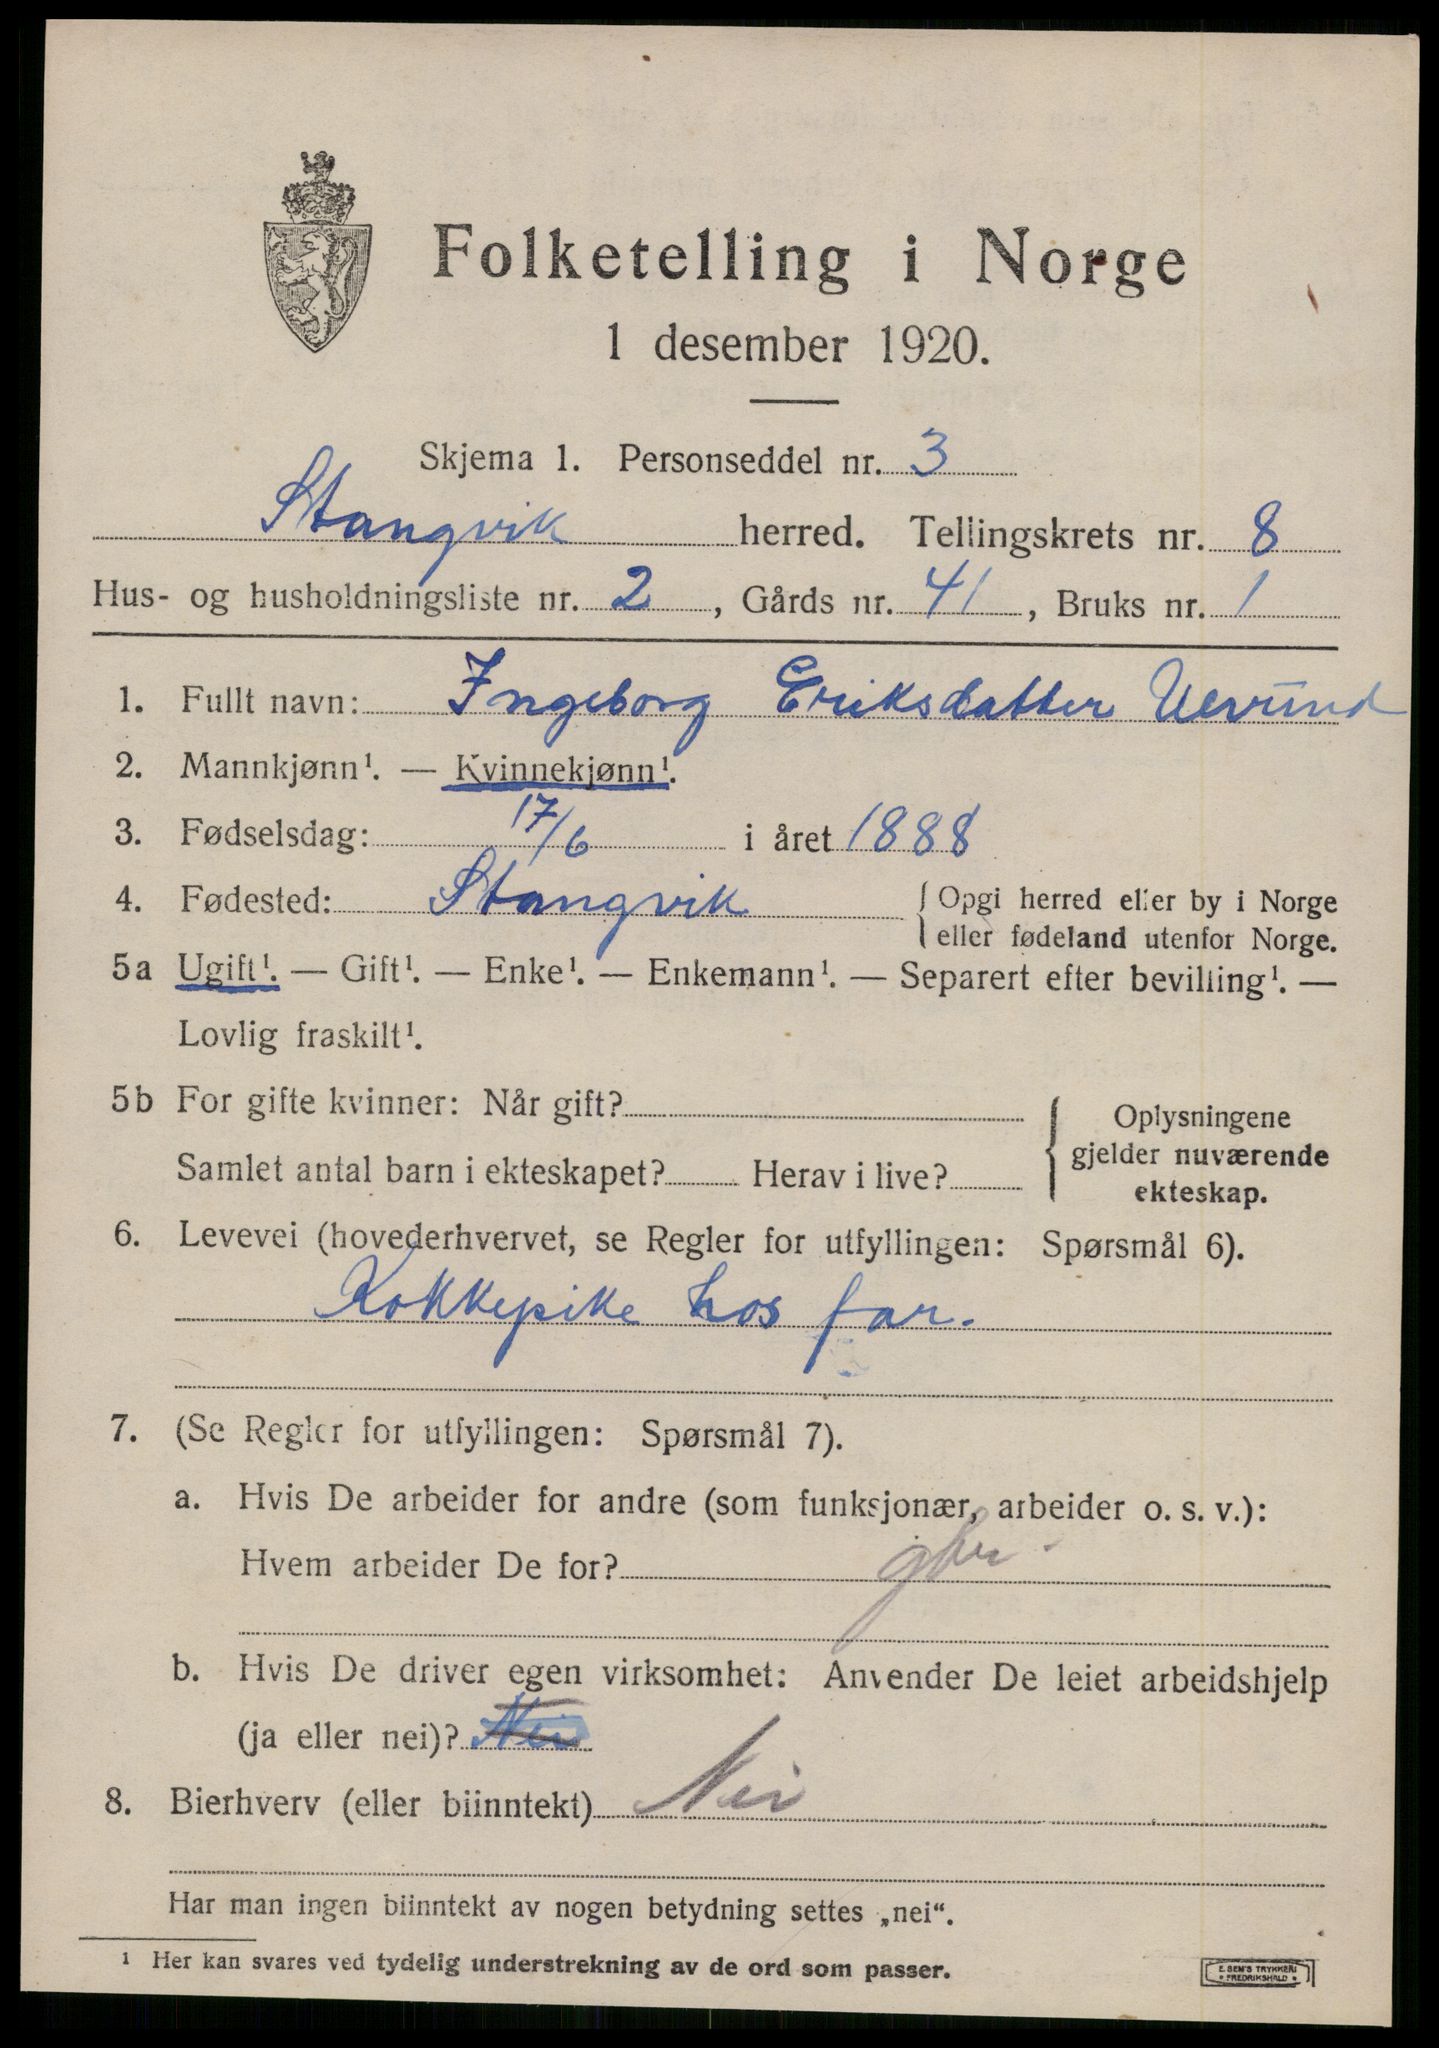 Folketelling i Norge
1 desember 1920.
Skjema 1. Personseddel nr. 3
Stangvik herred. Tellingskrets nr. 8
Hus- og husholdningsliste nr. 2, Gårds nr. 41, Bruks nr. 1
1. Fullt navn: Ingeborg Eriksdatter Ulvund
2. Mannkjønn¹. — Kvinnekjønn¹.
3. Fødselsdag: 17/6 i året 1888
4. Fødested: Stangvik { Opgi herred eller by i Norge
eller fødeland utenfor Norge.
5a Ugift¹. — Gift¹. — Enke¹. — Enkemann¹. — Separert efter bevilling¹. —
Lovlig fraskilt¹.
5b For gifte kvinner: Når gift?
Samlet antal barn i ekteskapet? Herav i live?
Oplysningene
gjelder nuværende
ekteskap.
6. Levevei (hovederhvervet, se Regler for utfyllingen: Spørsmål 6).
Kokkepike hos far.
7. (Se Regler for utfyllingen: Spørsmål 7).
a. Hvis De arbeider for andre (som funksjonær, arbeider o. s. v.):
Hvem arbeider De for?
b. Hvis De driver egen virksomhet: Anvender De leiet arbeidshjelp
(ja eller nei)? Nei
8. Bierhverv (eller biinntekt) Nei
Har man ingen biinntekt av nogen betydning settes „nei“.
¹ Her kan svares ved tydelig understrekning av de ord som passer.
E. SEM'S TRYKKERI
• FREDRIKSHALD •